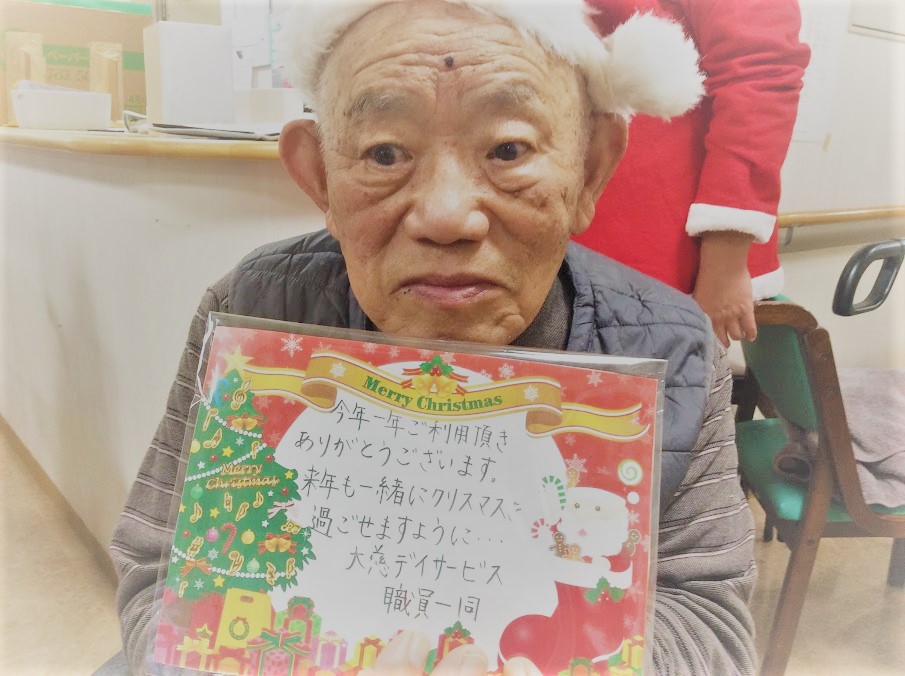 Merry Christmas
今年一年ご利用頂き
ありがとうございます。
来年も一緒にクリスマス、
過ごせますように…
大慈デイサービス
職員一同
Merry
Christmas